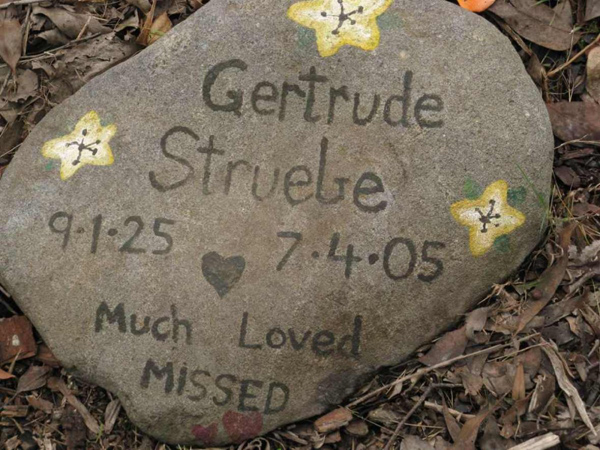 Gertrude
Struebe
9.1.25 7.4.05
Much Loved
MISSED